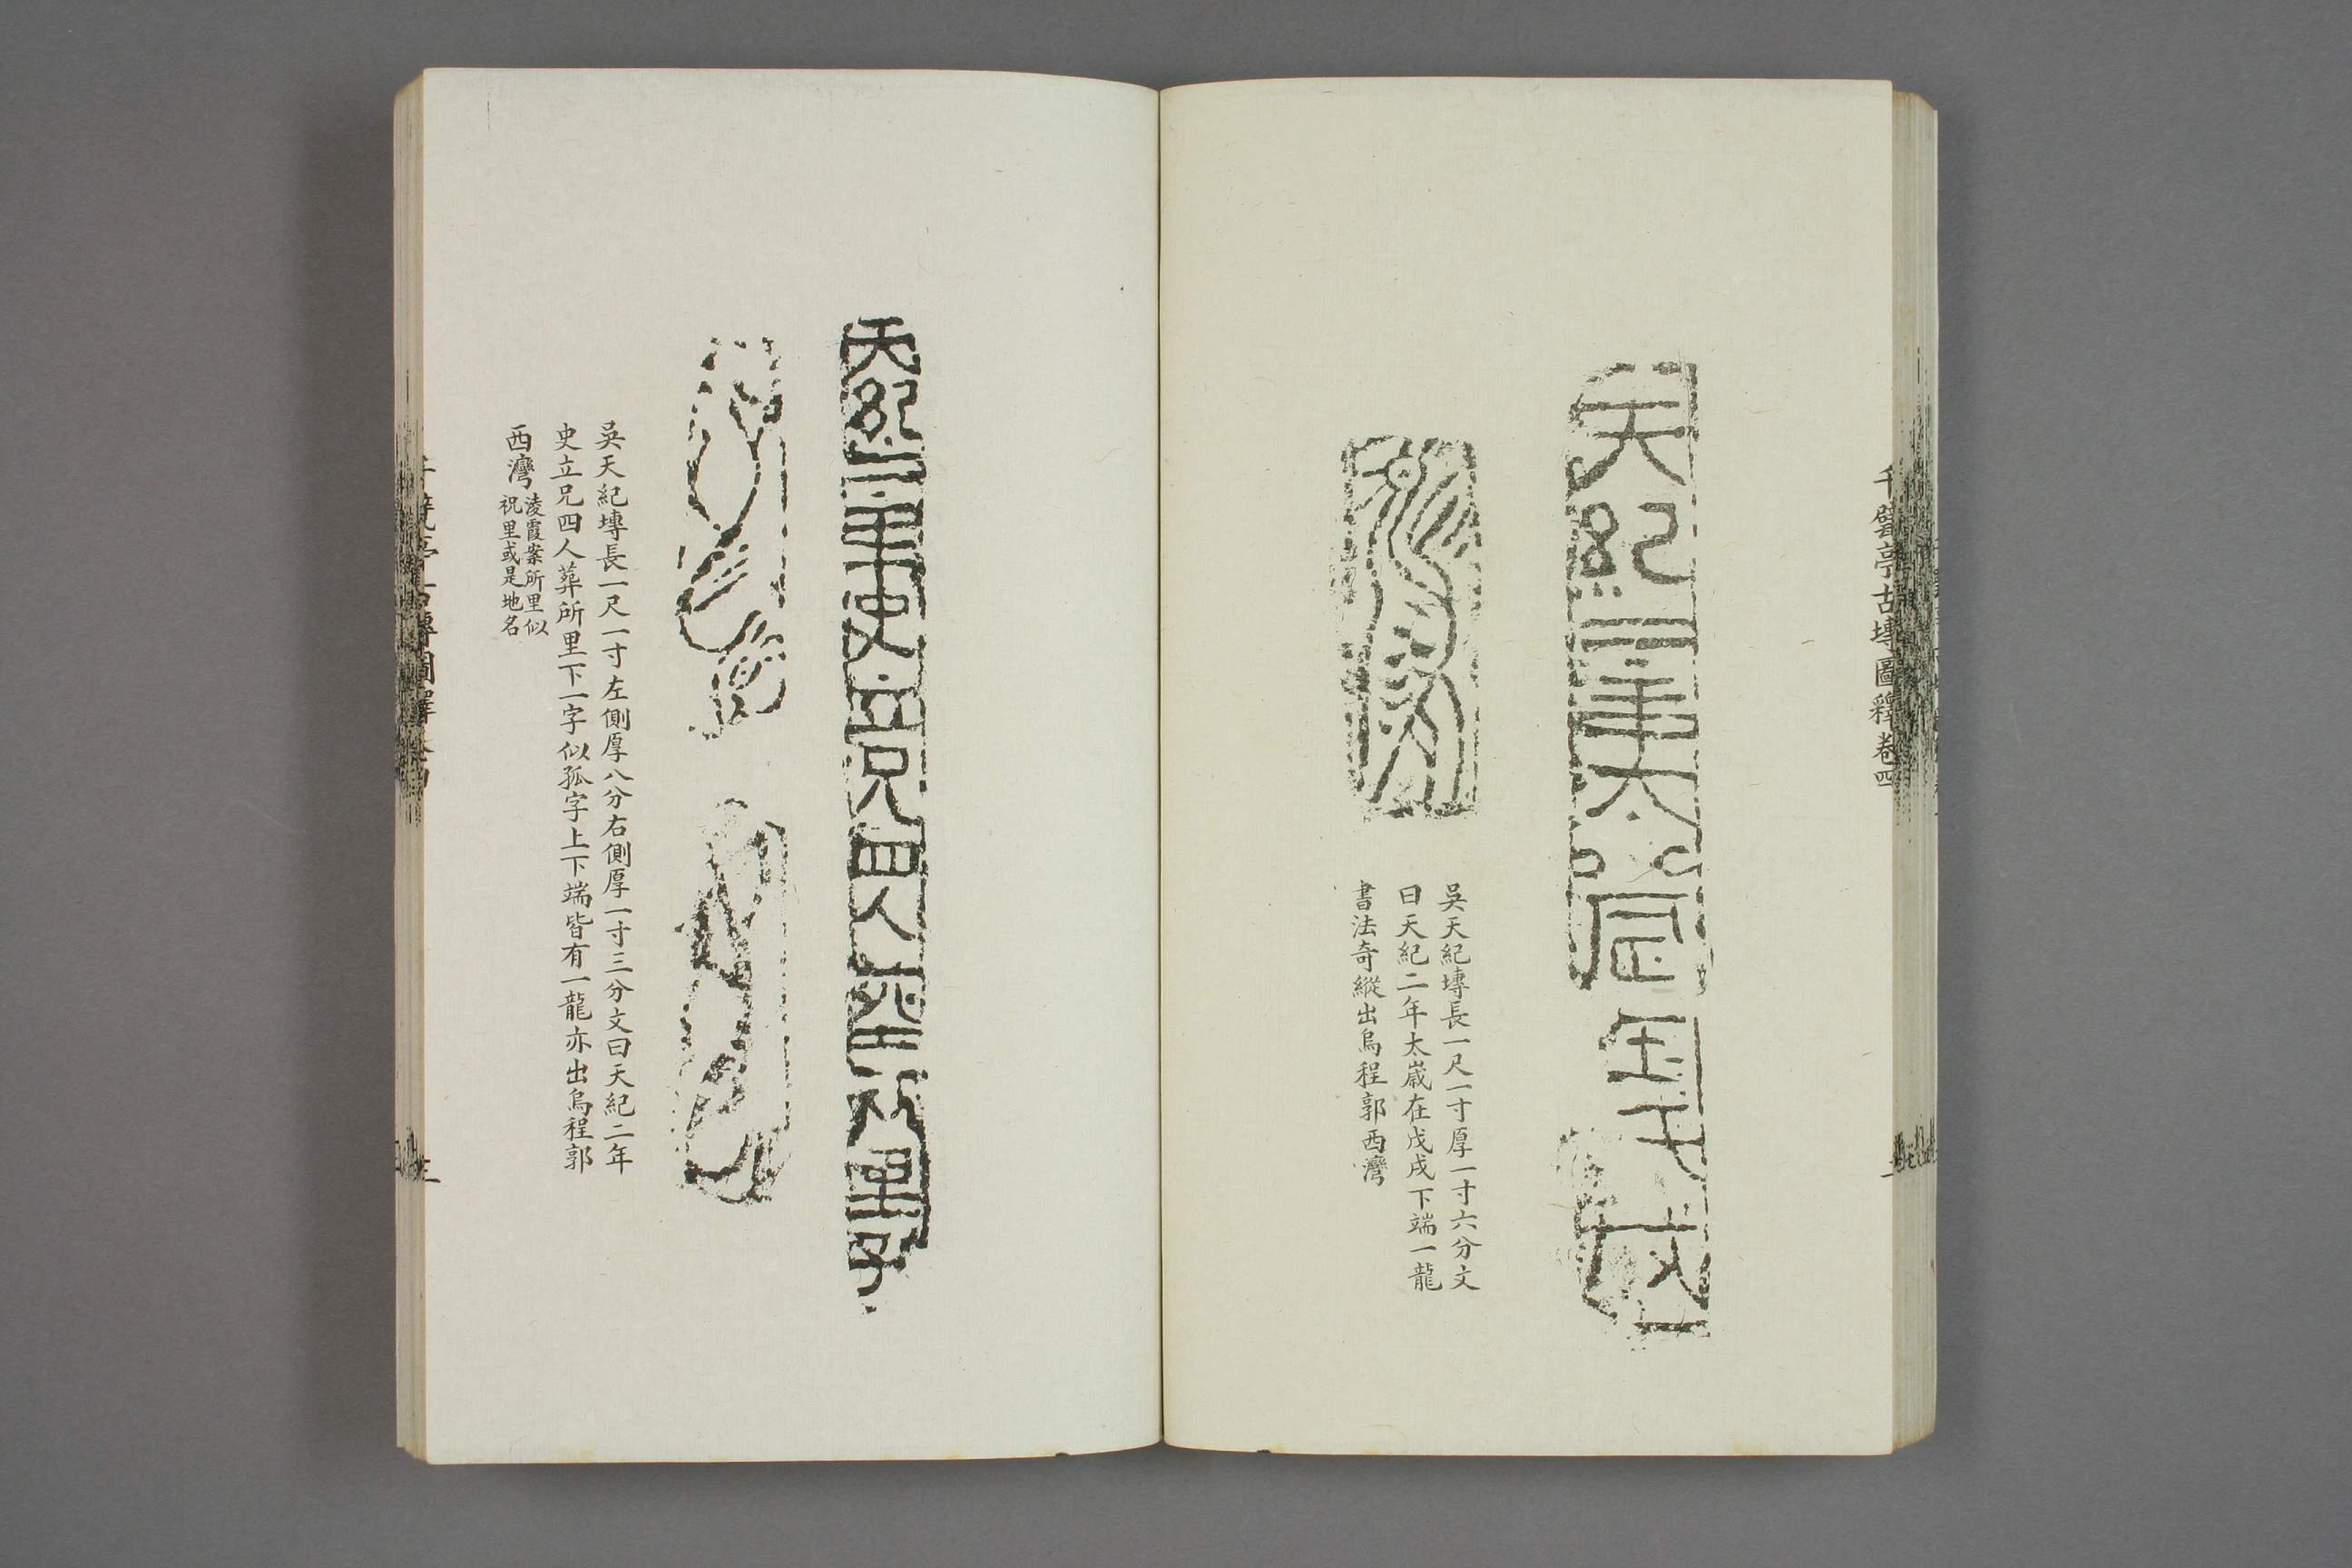 千甓亭古塼圖釋卷四
天紀二年太歲在戊戌
吳天紀塼長一尺一寸厚一寸六分文
曰天紀二年太嵗在戊戌下端一龍
書法奇縱出烏程郭西灣
天紀二年史立兄四人葬所里
吳天紀塼長一尺一寸左側厚八分右側厚一寸三分文曰天紀二年
史立兄四人葬所里下一字似孤字上下端皆有一龍亦出烏程郭
西灣
淩霞案所里似
祝里或是地名